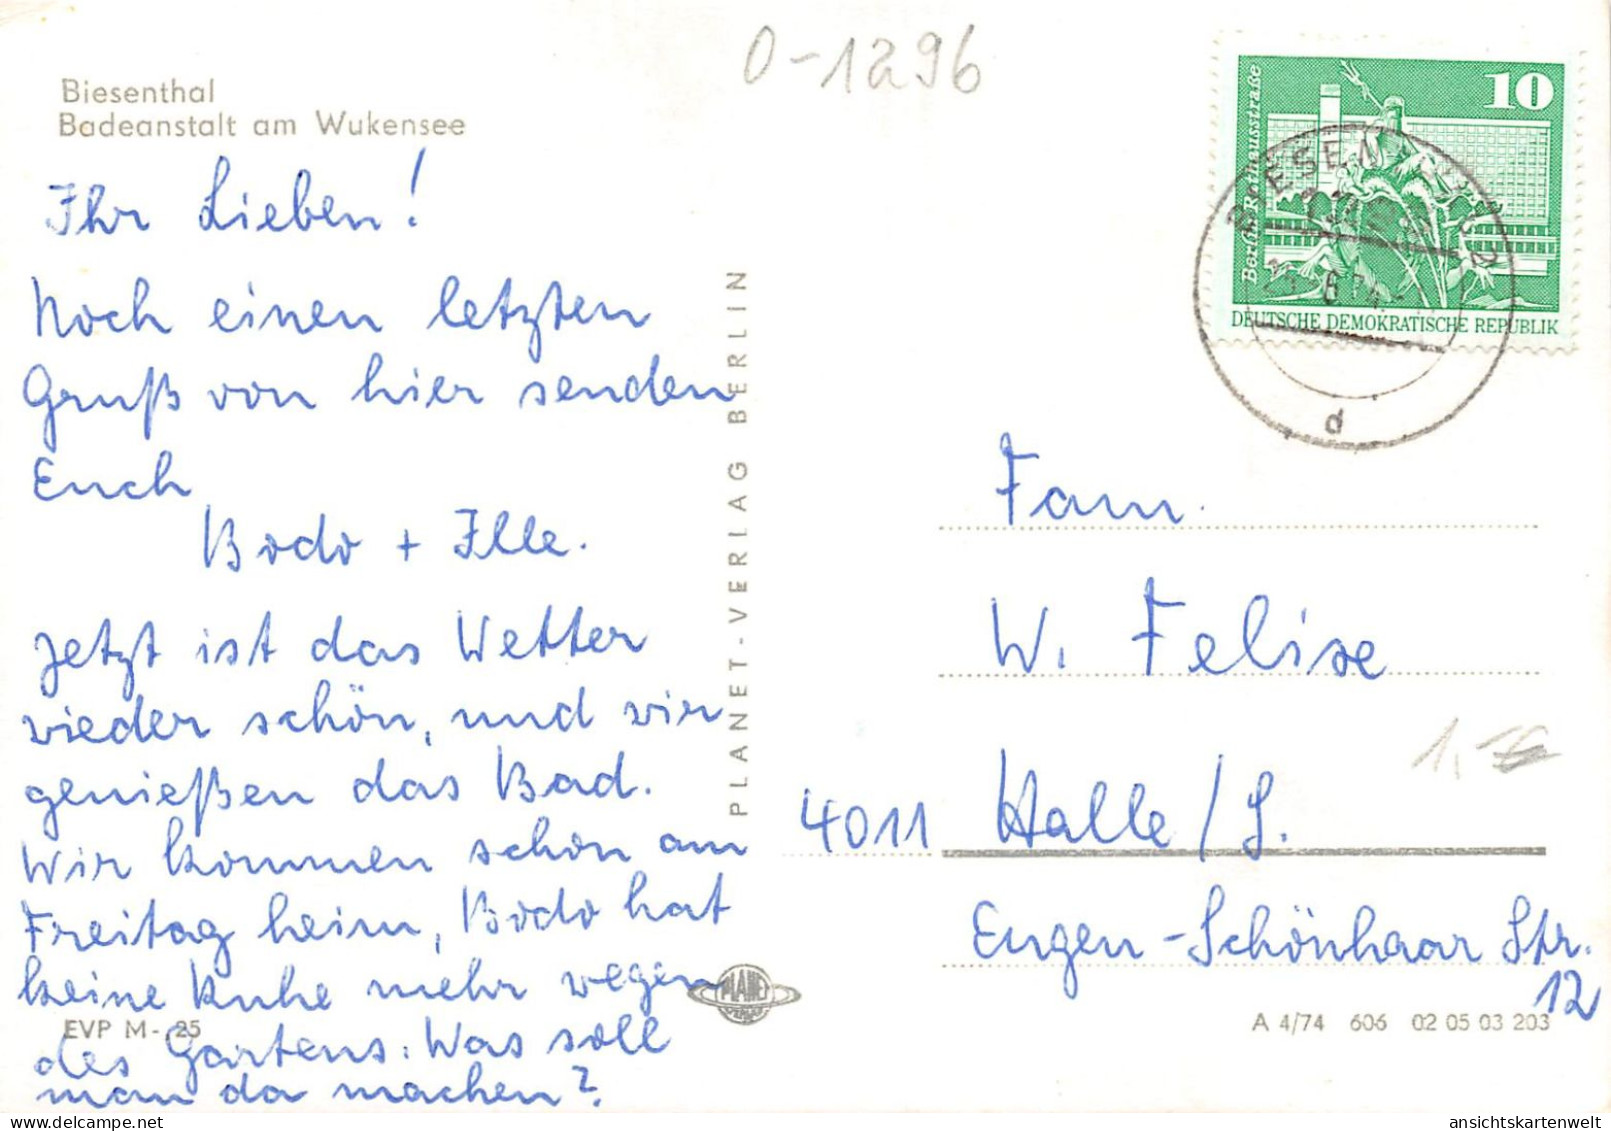 O-1296
Biesenthal
Badeanstalt am Wukensee
Ihr Lieben!
Noch einen letzten
Gruß von hier senden
Euch
Bodo + Ille.
Jetzt ist das Wetter
wieder schön, und wir
genießen das Bad.
Wir kommen schon am
Freitag heim, Bodo hat
keine Ruhe mehr wegen
des Gartens. Was soll
man da machen?
EVP M-,25
PLANET-VERLAG BERLIN
PLANET
VERLAG
10
Berlin, Rathausstraße
DEUTSCHE DEMOKRATISCHE REPUBLIK
d
Fam.
W. Felise
4011 Halle/S.
Eugen-Schönhaar Str.
12
1,-
A 4/74 606 02 05 03 203
ansichtskartenwelt